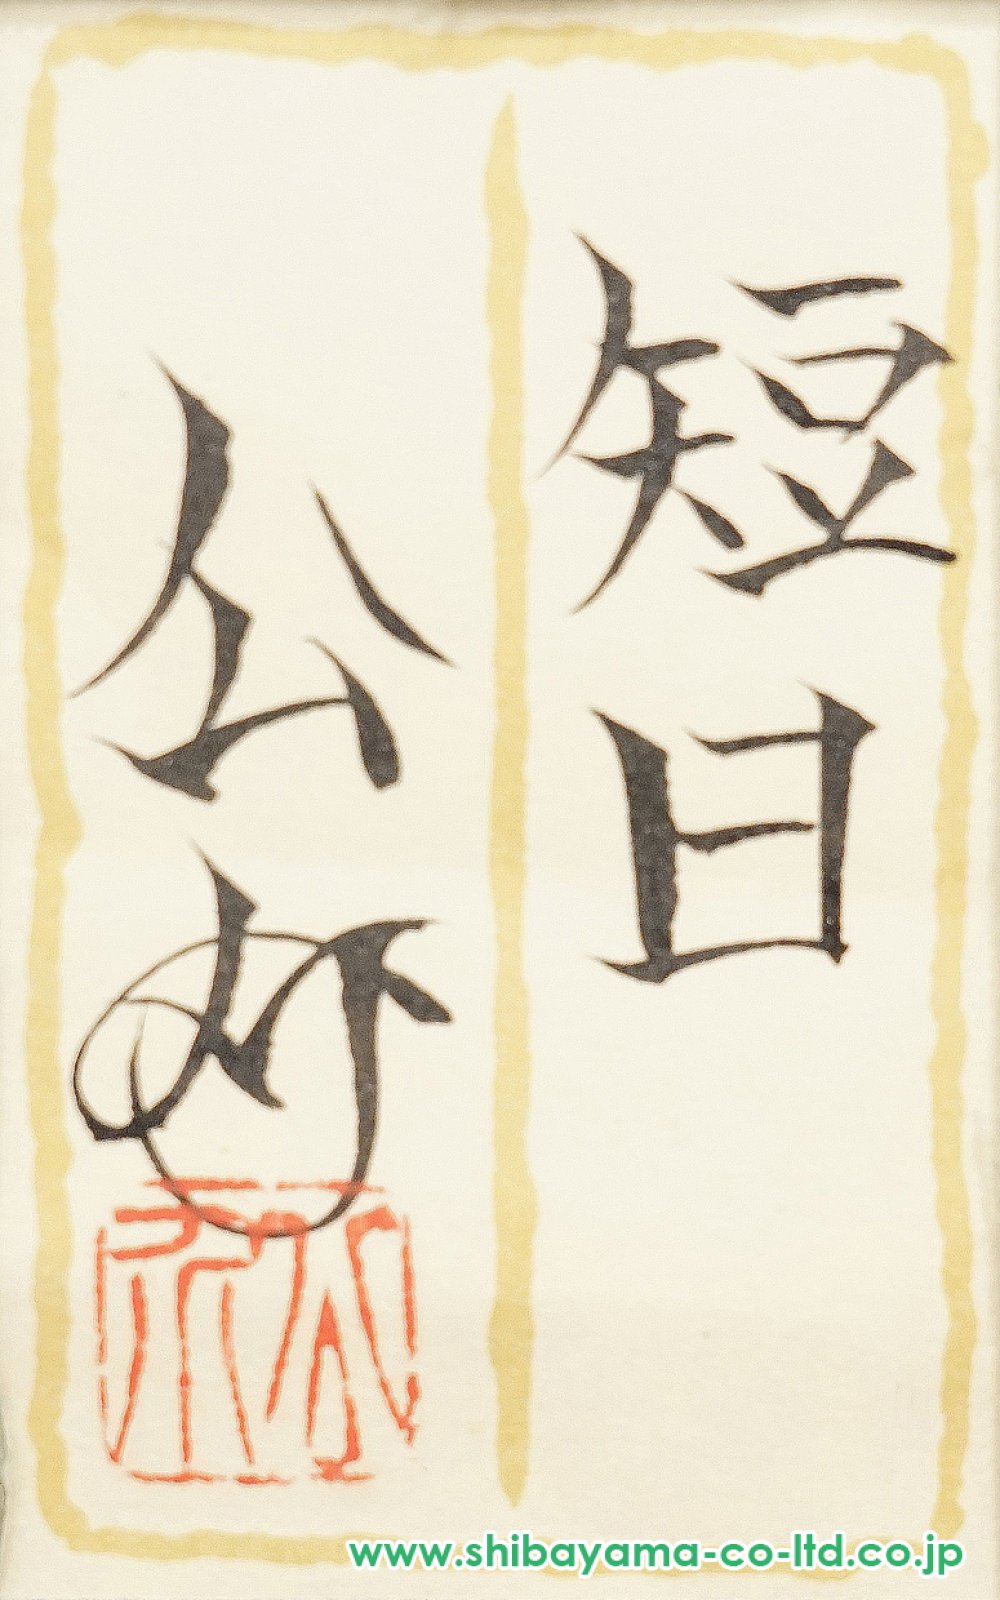 短日
公
www.shibayama-co-ltd.co.jp